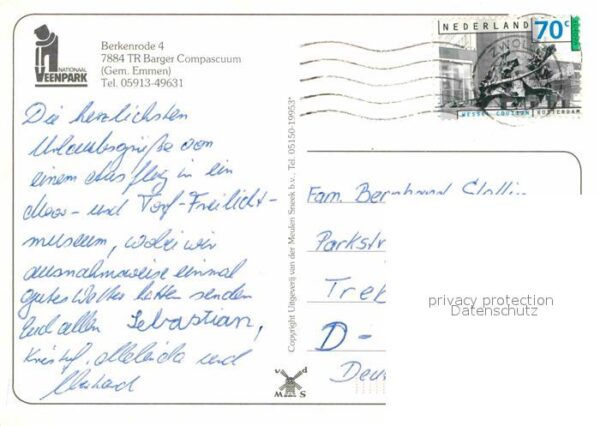 NATIONAAL
VEENPARK
Berkenrode 4
7884 TR Barger Compascuum
(Gem. Emmen)
Tel. 05913-49631
NEDERLAND 70c
ZWOLLE
WESSEL COUTZIJN ROTTERDAM
Die herzlichsten
Urlaubsgrüße von
einem Ausflug in ein
Moor- und Torf-Freilicht-
museum, wobei wir
ausnahmsweise einmal
gutes Wetter hatten senden
Euch allen Sebastian,
und
Copyright Uitgeverij van der Meulen Sneek b.v., Tel. 05150-19953*
Fam. Bernhard
Parkstr
Tret
D-
Deu
v d
M S
privacy protection
Datenschutz